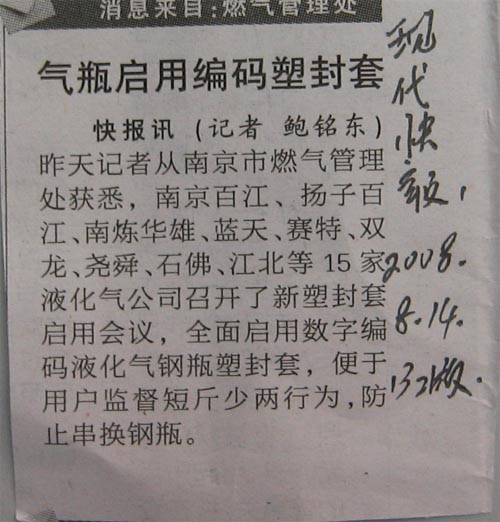 消息来自:燃气管理处
气瓶启用编码塑封套
快报讯(记者 鲍铭东)
昨天记者从南京市燃气管理
处获悉,南京百江、扬子百
江、南炼华雄、蓝天、赛特、双
龙、尧舜、石佛、江北等 15 家
液化气公司召开了新塑封套
启用会议,全面启用数字编
码液化气钢瓶塑封套,便于
用户监督短斤少两行为,防
止串换钢瓶。
现代快报,
2008.
8.14.
版.